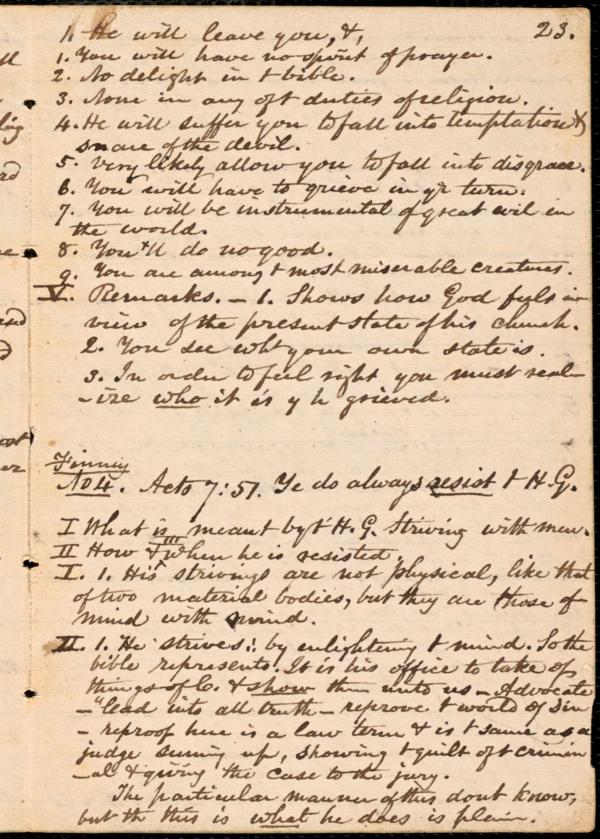 23.
1. He will leave you, &,
1. You will have no spirit of prayer.
2. No delight in t bible.
3. None in any of t duties of religion.
4. He will suffer you to fall into temptation &
snare of the devil.
5. Very likely allow you to fall into disgrace.
6. You will have to grieve in yr turn.
7. You will be instrumental of great evil in
the world.
8. You'll do no good.
9. You are among t most miserable creatures.
V. Remarks. – 1. Shows how God feels in
view of the present state of his church.
2. You see wht your own state is.
3. In order to feel right you must real-
-ize who it is y h grieved.
Finney
No 4. Acts 7:51. Ye do always resist t H. G.
I What is meant by t H. G. Striving with man.
II How & III when he is resisted.
I. 1. His strivings are not physical, like that
of two material bodies, but they are those of
mind with mind.
II. 1. He strives: by enlightening t mind. So the
bible represents. It is his office to take of
things of C. & show them unto us – Advocate
– "lead into all truth – reprove t world of Sin
– reproof here is a law term & is t same as a
judge suming up, showing t guilt of t crimin
-al & giving the case to the jury.
The particular manner of this dont know,
but th this is what he does is plain.